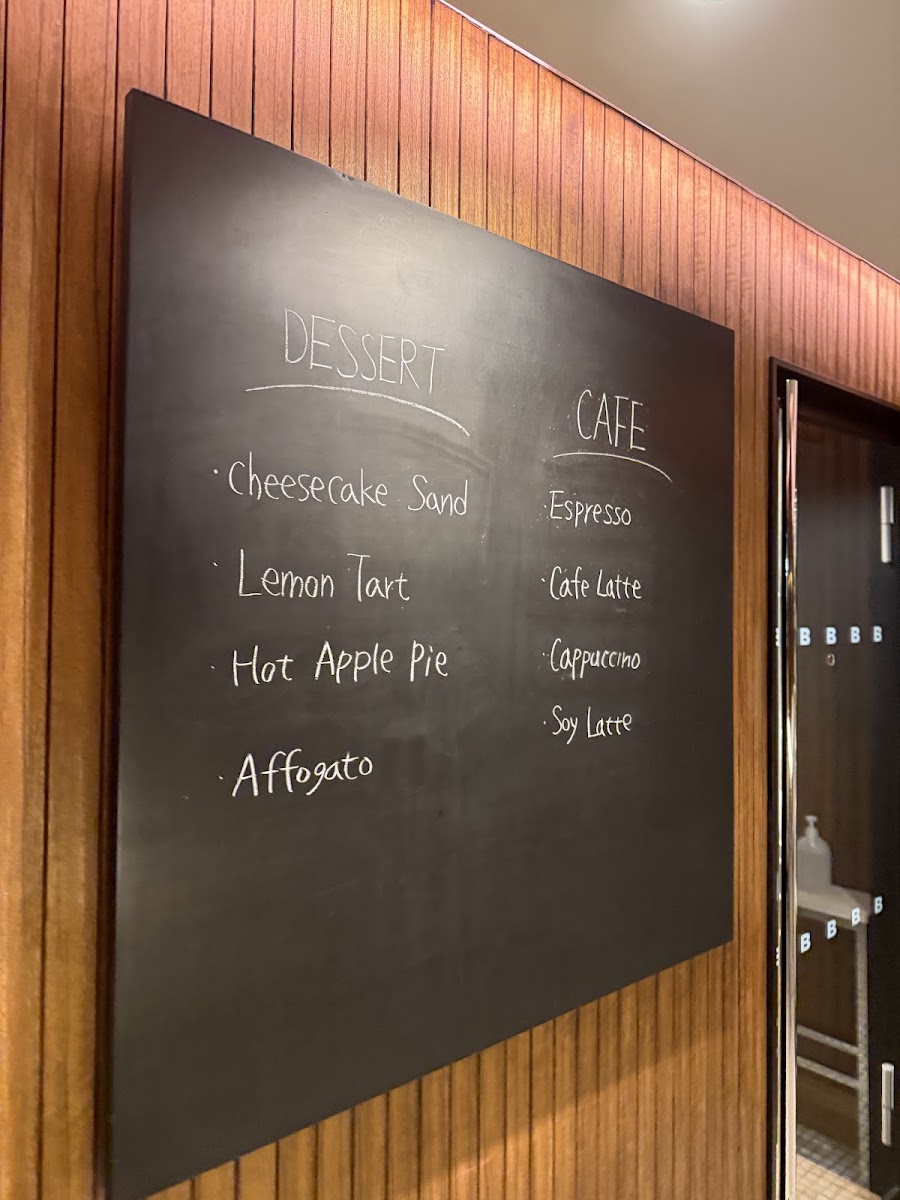 DESSERT
· Cheesecake Sand
· Lemon Tart
· Hot Apple Pie
· Affogato
CAFE
· Espresso
· Cafe Latte
· Cappuccino
· Soy Latte
B B B B
B B B B